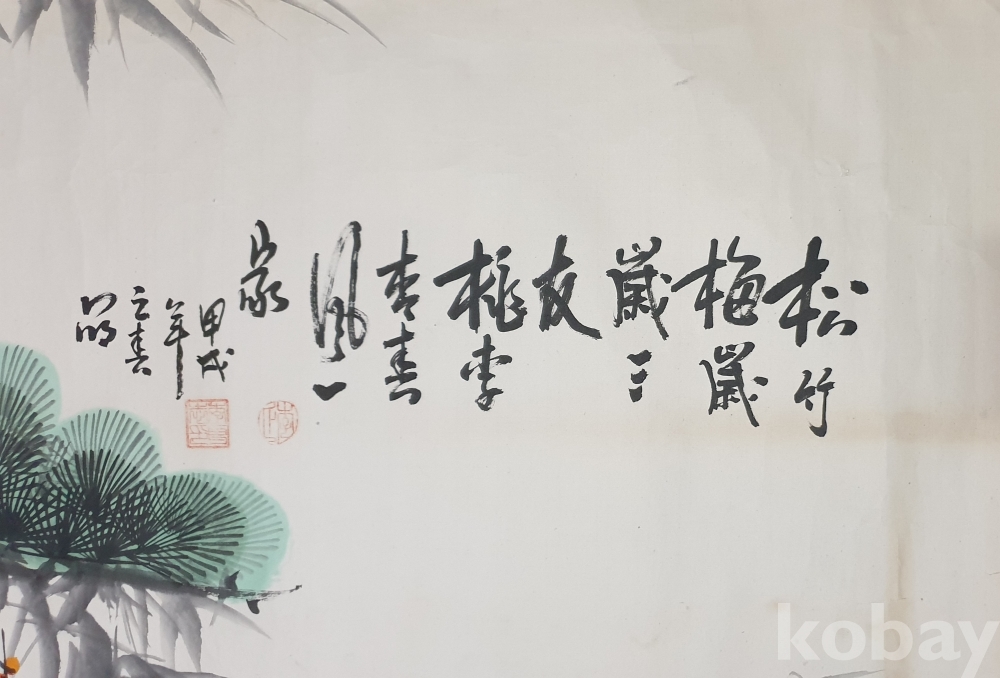 松竹
梅歲
歲三
友
桃李
杏春
風一
家
甲戌
年
立春
kobay